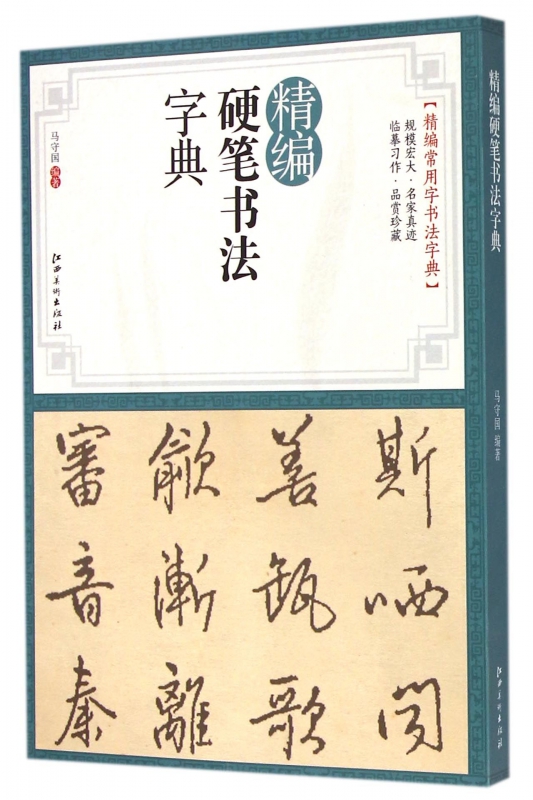 【精编常用字书法字典】
规模宏大·名家真迹
临摹习作·品赏珍藏
精编
硬笔书法
字典
马守国 编著
江西美術出版社
斯哂
善歌
歙漸離
審音秦
精编硬笔书法字典
马守国 编著
江西美術出版社